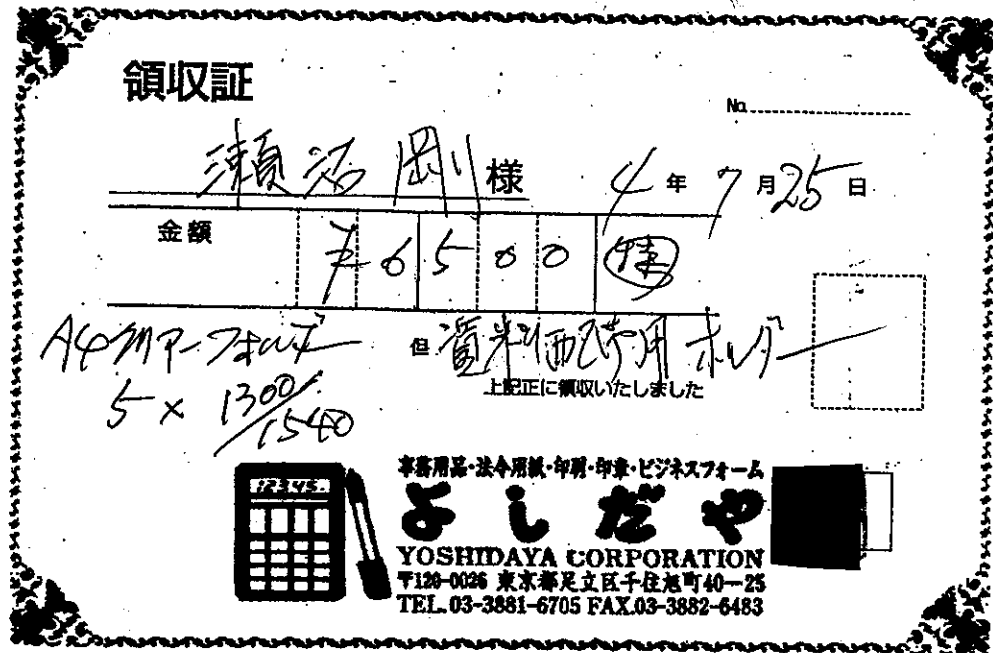 領収証
No.
瀬沼 剛 様 4年 7月25日
金額 ¥6500 特
A4クリアーフォルダー 但 資料配布用ホルダー
5 × 1300/1540 上記正に領収いたしました
12345.
事務用品・法令用紙・印刷・印章・ビジネスフォーム
よしだや
YOSHIDAYA CORPORATION
〒120-0026 東京都足立区千住旭町40-25
TEL.03-3881-6705 FAX.03-3882-6483